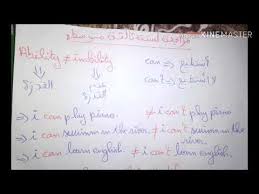 KINEMASTER
Ability ≠ inability
can ⇒ أستطيع
can't ⇒ لا أستطيع
القدرة
⇒ i can play piano. ≠ i can't play piano.
⇒ i can swimm in the river. ≠ i can't swimm in the river.
⇒ i can learn english. ≠ i can't learn english.